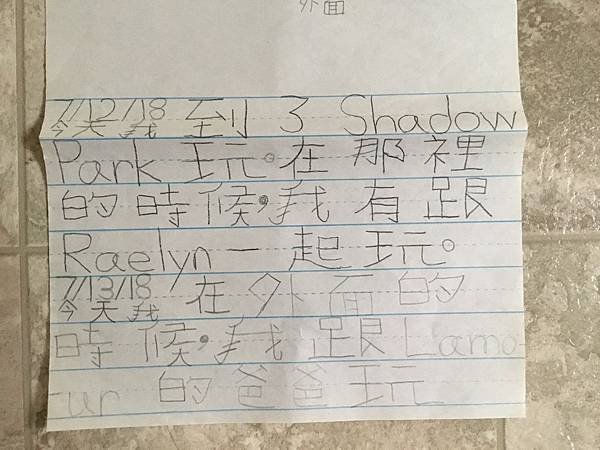 外面
7/12/18
今天我到了 Shadow
Park 玩。在那裡
的時候,我有跟
Raelyn一起玩。
7/13/18
今天我在外面的
時候,我跟Lamo-
ur 的爸爸玩